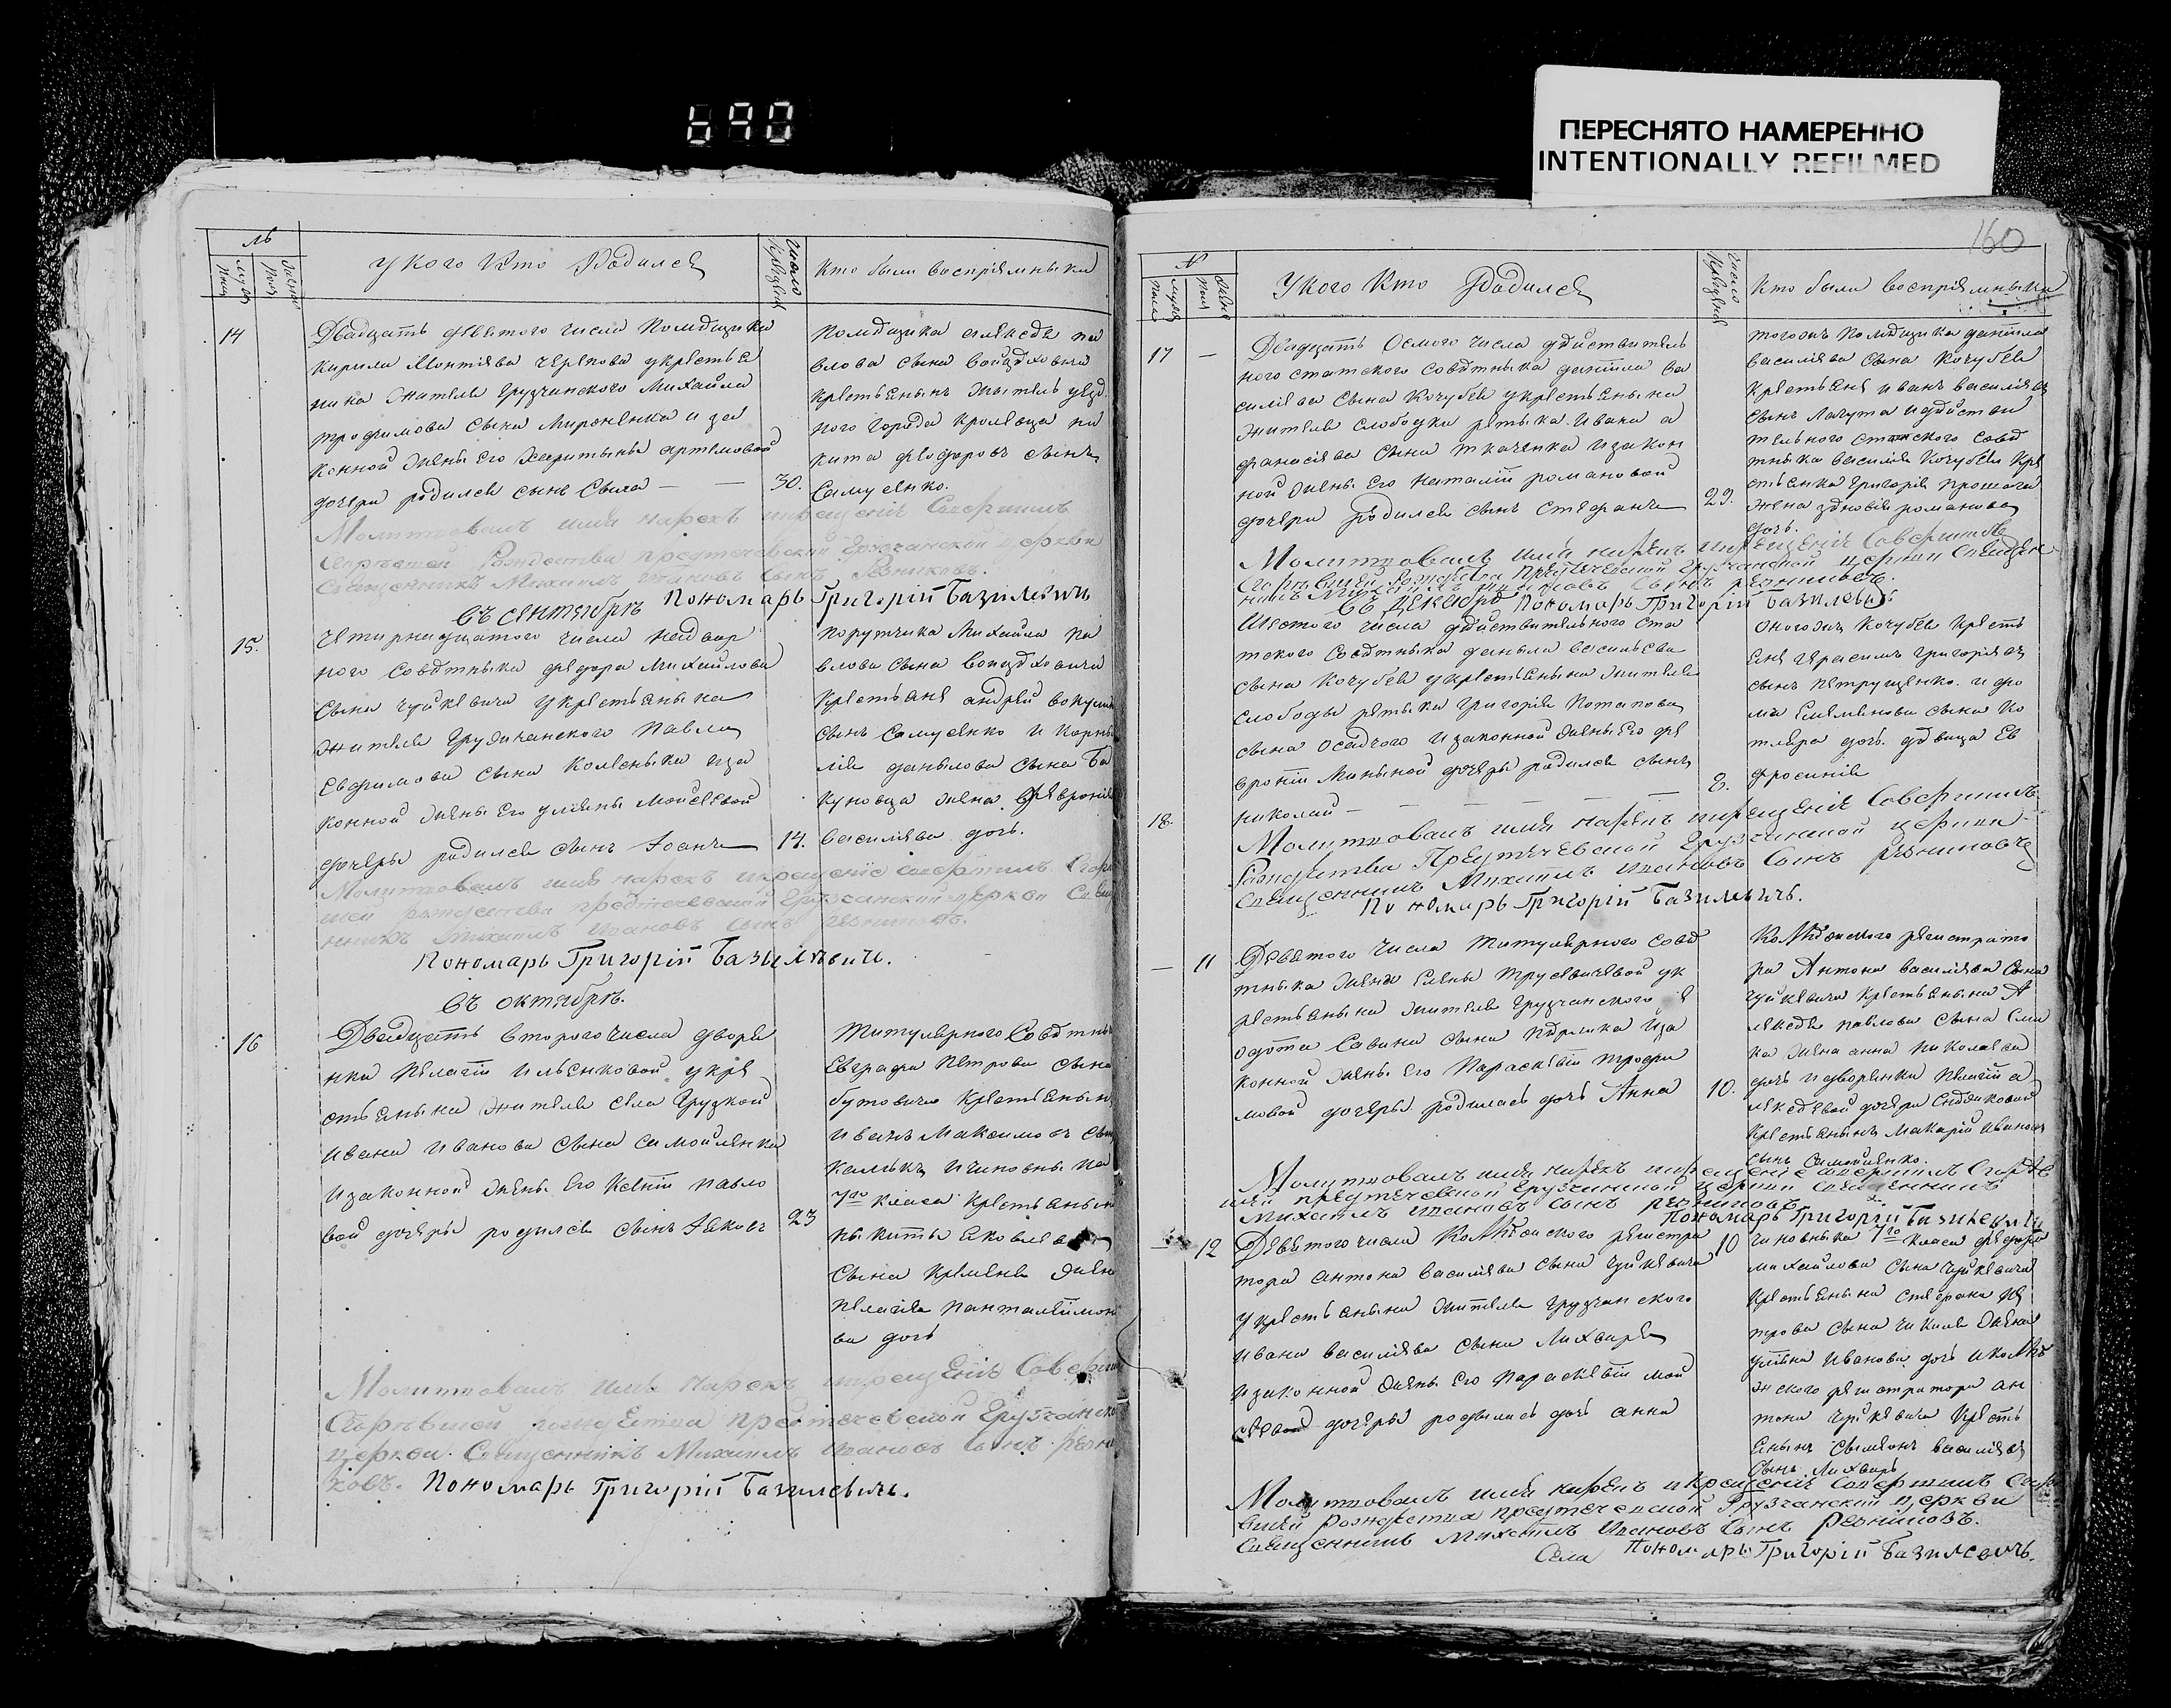 690
ПЕРЕСНЯТО НАМЕРЕННО
INTENTIONALLY REFILMED
160
№
У кого кто Родился
Число крещения
Кто были восприемники
14
Двадцать девятого числа помещика
кирила
укрестья
нина жителя грузчанского Михайла
трофимова сына Мироненка и за
конной жены его Харитины артемовой
дочери родился сынъ Савва
30.
помещика алексея па
влова сына войцеховича
крестьянинъ житель уезд
ного города кролевца ни
кита феодоровъ сынъ
Самусенко.
Молитвовалъ имя нарекъ и крещение Совершилъ
Сгоревшей Рождества предтечевской грузчанской церкви
Священникъ Михаилъ Ивановъ Сынъ Резниковъ.
Пономарь Григорій Базилевичъ
въ сентябре
15.
четырнадцатого числа надвор
ного Советника федора Михайлова
сына чуйкевича укрестьянина
жителя грузчанского Павла
Евфимова сына Коленика и за
конной жены его улияны Мойсеевой
дочеры родился сынъ Іоаннъ
14.
порутчика Михайла па
влова сына войцеховича
крестьяне андрей
сынъ Самусенко и Корни
лія данилова сына Ба
куновца жена Февронія
василиева дочь.
Молитвовалъ имя нарекъ и крещение совершилъ Сгоре
шей рождества предтечевской Грузчанской церкви Свяще
нникъ Михаилъ Ивановъ сынъ Резниковъ.
Пономарь Григорій Базилевичъ.
въ октябре.
16
Двадцать второго числа дворя
нки Пелагіи Ильенковой укре
стьянина жителя села Грузкой
ивана иванова сына самойленка
и законной жены его Ксеніи павло
вой дочеры родился сынъ Іаковъ
23
титулярного Советни
Евграфа Петрова сына
бутовича крестьянин
иванъ Максимовъ сын
калька и чиновника
7го класа крестьянин
никиты яковлева
сына кремена жена
пелагея панталеймоно
ва дочь
Молитвовалъ имя нарекъ и крещение Соверши
Сгоревшей рождества предтечевской Грузчанско
церкви Священникъ Михаилъ Ивановъ Сынъ резни
ковъ. Пономарь Григорій Базилевичъ.
№
У кого Кто Родился
Число крещения
Кто были восприемники
17
Двадцать Осмого числа действитель
ного статского советника данила ва
силиева сына Кочубея укрестьянина
жителя слободки ретика ивана а
фанасиева сына ткаченка и закон
ной жены его Наталіи романовой
дочери родился сынъ Стефанъ
29.
тогожъ помещика данила
василиева сына Кочубея
крестьяне иванъ василиевъ
сынъ Лагута и действи
тельного статского сове
тника василия Кочубея кре
стьянка григория
жена зиновія романова
дочь.
Молитвовалъ имя нарекъ и крещение Совершилъ
Сгоревшей Рождества Предтечевской Грузчанской церкви Священ
никъ Михаилъ Ивановъ Сынъ резниковъ.
въ декабре Пономарь Григорій Базилевичъ
18.
Шестого числа действительного ста
тского Советника данила василиева
сына Кочубея укрестьянина жителя
слободы ретика григория Потапова
сына Осадчого и законной жены его фе
вроніи Мининой дочеры родился сынъ
николай
8.
оногожъ Кочубея кресть
яне герасимъ григориевъ
сынъ петрущенко. и фо
ми Емелянова сына ко
тляра дочь девица ев
фросинія
Молитвовалъ имя нарекъ и крещение Совершилъ
Рождества Предтечевской Грузчанской церкви
Священникъ Михаилъ Ивановъ Сынъ резниковъ
Пономарь Григорій Базилевичъ.
11
Девятого числа титулярного сове
тника жены Елены Трусевичевой ук
рестьянина жителя Грузчанского
Савина сына и за
конной жены его Параскевіи трофи
мовой дочеры родилась дочь Анна
10.
Колежского регистрато
ра Антона василиева сына
чуйкевича крестьянина А
лексея павлова сына
жена анна николаева
дочь и дворянки пелагіи а
лексеевой дочери
крестьянинъ Макарій Ивановъ
сынъ Самойленко.
Молитвовалъ имя нарекъ и крещение совершилъ Сгорев
шей предтечевской Грузчанской церкви Священникъ
Михаилъ Ивановъ сынъ резниковъ
Пономарь Григорій Базилевичъ
12
Девятого числа Колежского регистра
тора антона василиева сына чуйкевича
укрестьянина жителя грузчанского
ивана василиева сына Лихваря
и законной жены его параскевіи мой
сеевой дочеры родилась дочь анна
10
чиновника 7го класа федора
михайлова сына чуйкевича
крестьянина стефана пе
трова сына жена
улияна Иванова дочь и коле
жского регистратора ан
тона чуйкевича кресть
янинъ Симеонъ василиевъ
сынъ Лихварь
Молитвовалъ имя нарекъ и крещение Совершилъ Сгоре
вшей рождества предтечевской Грузчанской церкви
Священникъ Михаилъ Ивановъ Сынъ Резниковъ.
Села Пономарь Григорій Базилевичъ.